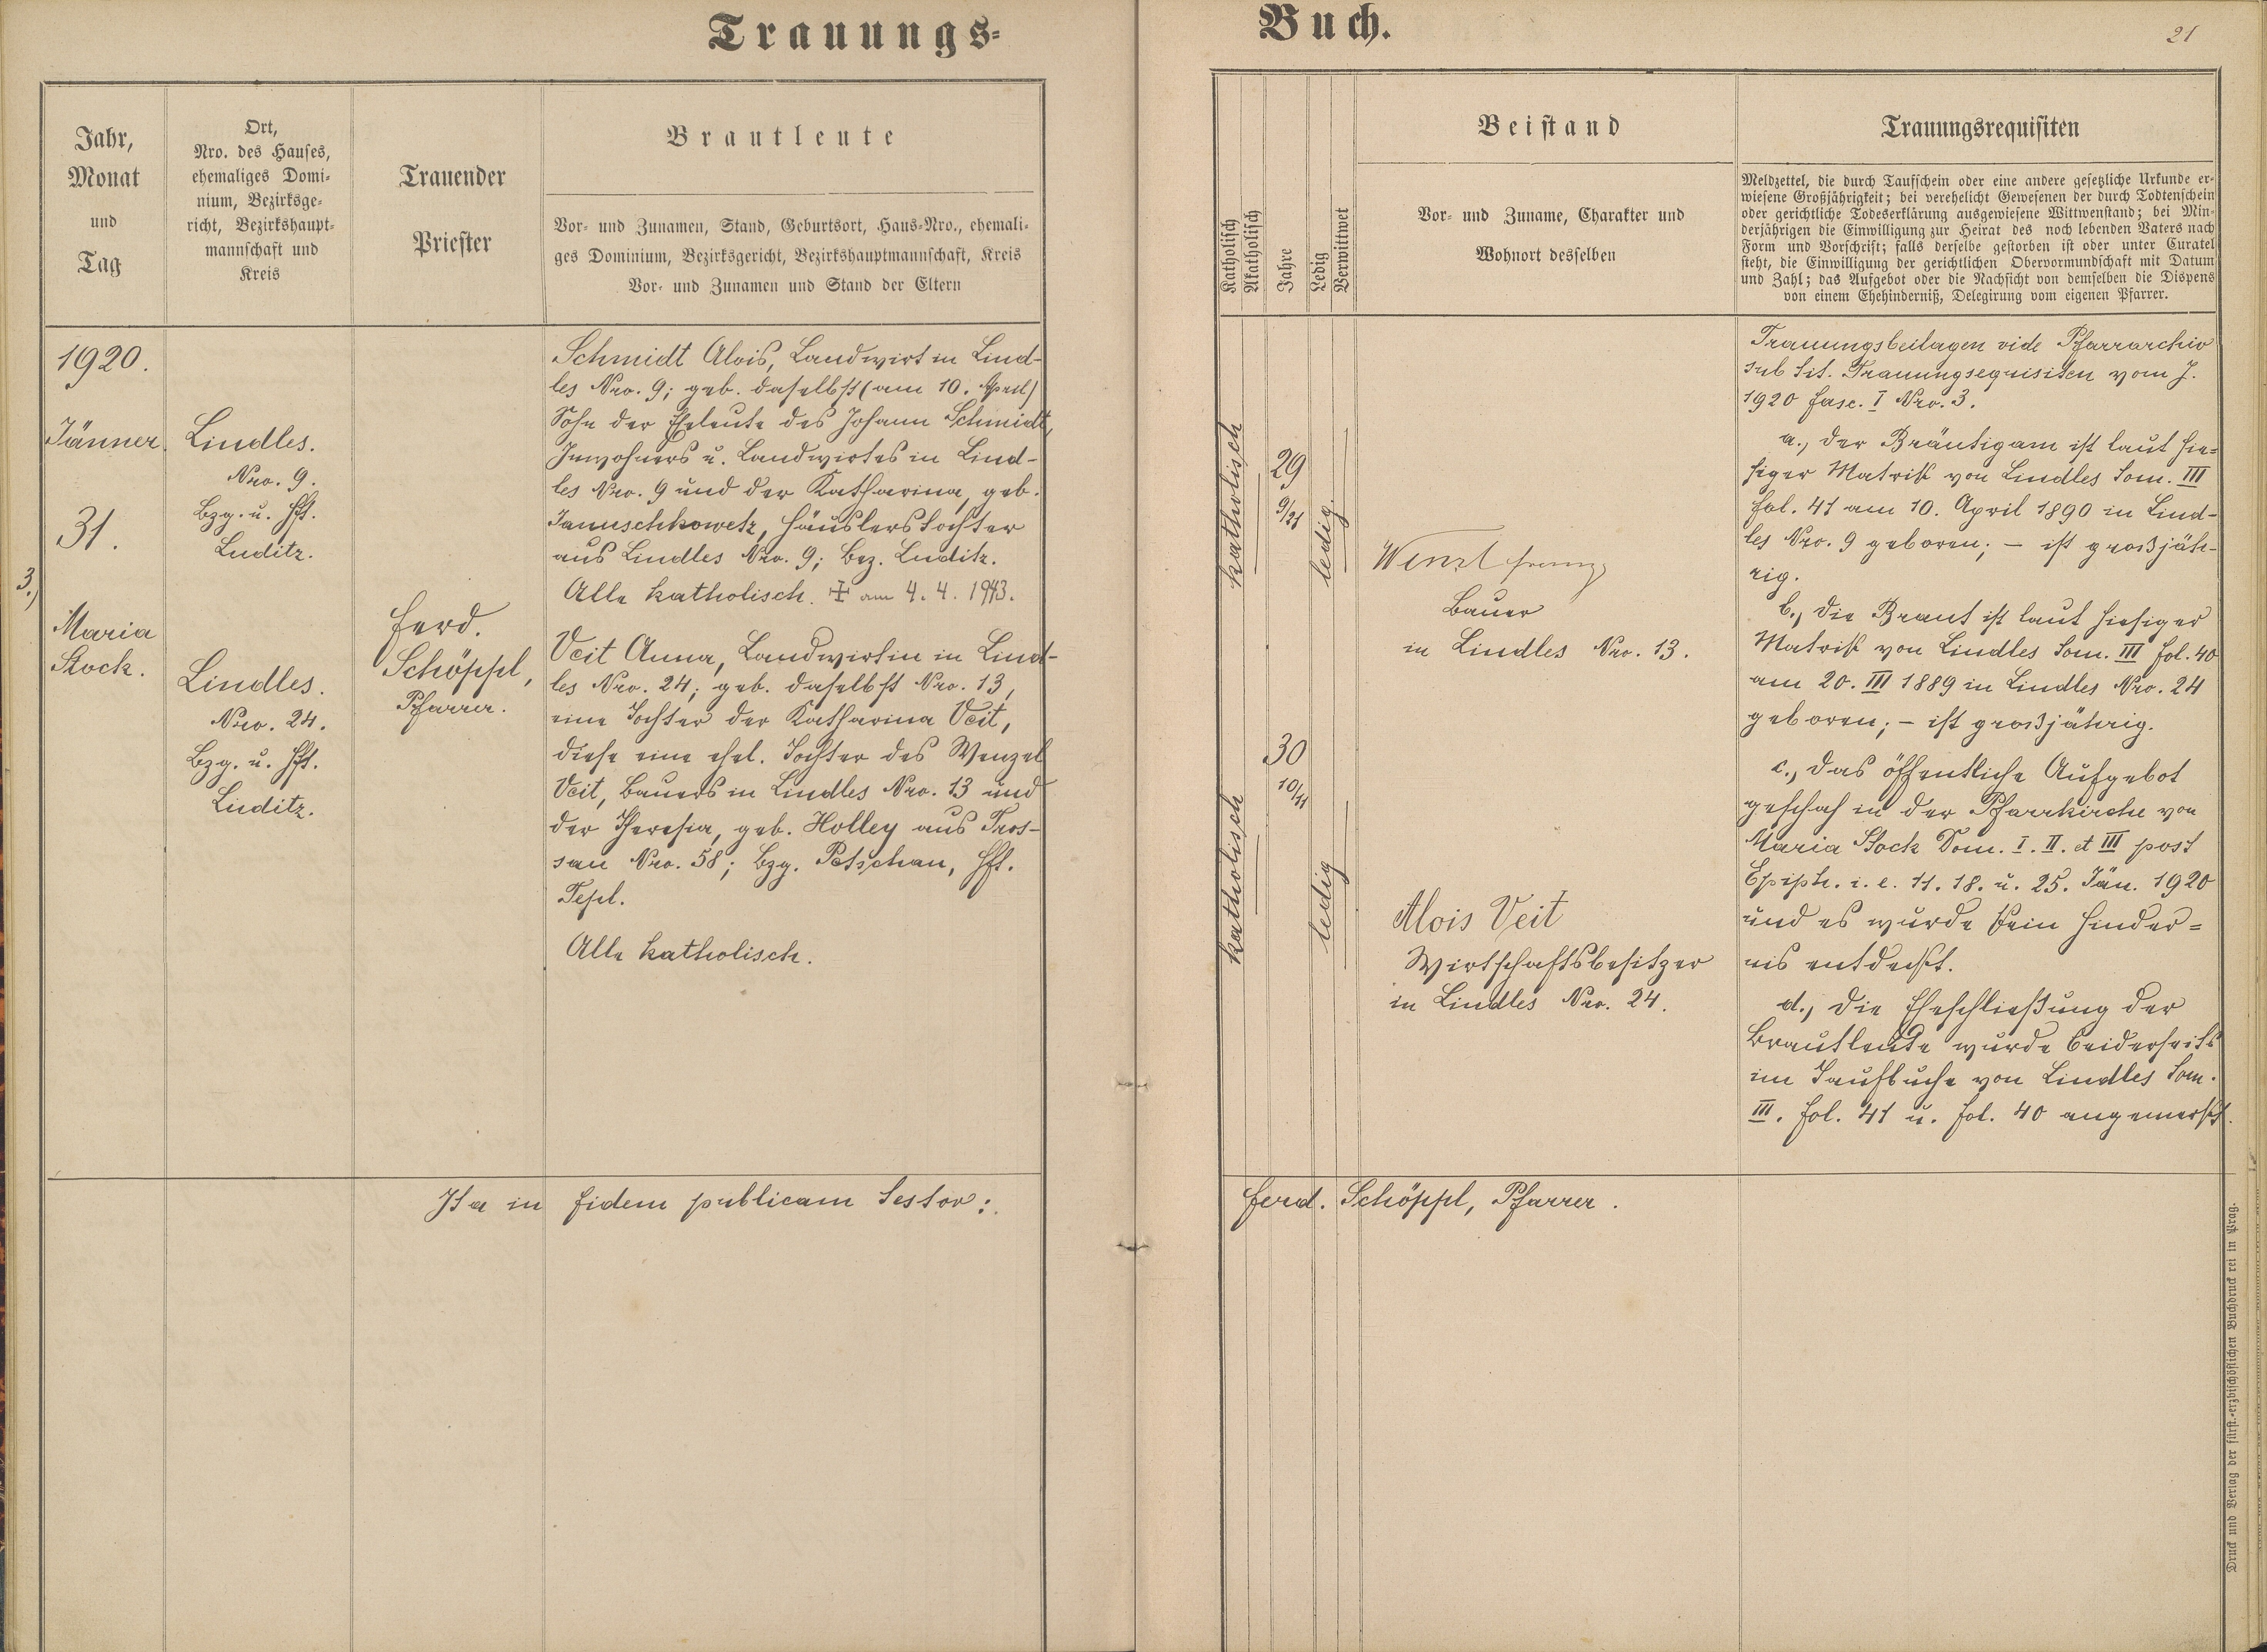 Trauungs-
Jahr,
Monat
und
Tag
Ort,
Nro. des Hauses,
ehemaliges Domi-
nium, Bezirksge-
richt, Bezirkshaupt-
mannschaft und
Kreis
Trauender
Priester
Brautleute
Vor- und Zunamen, Stand, Geburtsort, Haus-Nro., ehemali-
ges Dominium, Bezirksgericht, Bezirkshauptmannschaft, Kreis
Vor- und Zunamen und Stand der Eltern
1920.
Jänner
31.
3.)
Maria
Stock.
Lindles.
Nro. 9.
Bzg. u. Hft.
Luditz.
Lindles.
Nro. 24.
Bzg. u. Hft.
Luditz.
Ferd.
Schöppl,
Pfarrer.
Schmidt Alois, Landwirt in Lind-
les Nro. 9; geb. daselbst (am 10. April)
Sohn der Eheleute des Johann Schmidt,
Inwohners u. Landwirtes in Lind-
les Nro. 9 und der Katharina, geb.
Januschkowetz, Häuslerstochter
aus Lindles Nro. 9; Bez. Luditz.
Alle katholisch. ✠ am 4. 4. 1943.
Veit Anna, Landwirtin in Lind-
les Nro. 24; geb. daselbst Nro. 13,
eine Tochter der Katharina Veit,
diese eine ehel. Tochter des Wenzel
Veit, Bauers in Lindles Nro. 13 und
der Theresia, geb. Holley aus Tros-
sau Nro. 58; Bzg. Petschau, Hft.
Tepl.
Alle katholisch.
Ita in fidem publicam testor:
Buch.
21
Katholisch
Akatholisch
Jahre
Ledig
Verwittwet
Beistand
Vor- und Zuname, Charakter und
Wohnort desselben
Trauungsrequisiten
Meldzettel, die durch Taufschein oder eine andere gesetzliche Urkunde er-
wiesene Großjährigkeit; bei verehelicht Gewesenen der durch Todtenschein
oder gerichtliche Todeserklärung ausgewiesene Wittwenstand; bei Min-
derjährigen die Einwilligung zur Heirat des noch lebenden Vaters nach
Form und Vorschrift; falls derselbe gestorben ist oder unter Curatel
steht, die Einwilligung der gerichtlichen Obervormundschaft mit Datum
und Zahl; das Aufgebot oder die Nachsicht von demselben die Dispens
von einem Ehehinderniß, Delegirung vom eigenen Pfarrer.
katholisch
29
9/21
ledig
Wenzl Franz
Bauer
in Lindles Nro. 13.
katholisch
30
10/11
ledig
Alois Veit
Wirtschaftsbesitzer
in Lindles Nro. 24.
Trauungsbeilagen vide Pfarrarchiv
sub tit. Trauungsequisiten vom J.
1920 fasc. I Nro. 3.
a., Der Bräutigam ist laut hie-
siger Matrik von Lindles Tom. III
fol. 41 am 10. April 1890 in Lind-
les Nro. 9 geboren; – ist großjäh-
rig.
b., Die Braut ist laut hiesiger
Matrik von Lindles Tom. III fol. 40
am 20. III 1889 in Lindles Nro. 24
geboren; – ist großjährig.
c., Das öffentliche Aufgebot
geschah in der Pfarrkirche von
Maria Stock Dom. I. II. et III post
Epiph. i. e. 11. 18. u. 25. Jän. 1920
und es wurde kein Hinder=
nis entdeckt.
d., Die Eheschließung der
Brautleute wurde beiderseits
im Taufbuche von Lindles Tom.
III. fol. 41 u. fol. 40 angemerkt.
Ferd. Schöppl, Pfarrer.
Druck und Verlag der fürst.-erzbischöflichen Buchdruckerei in Prag.